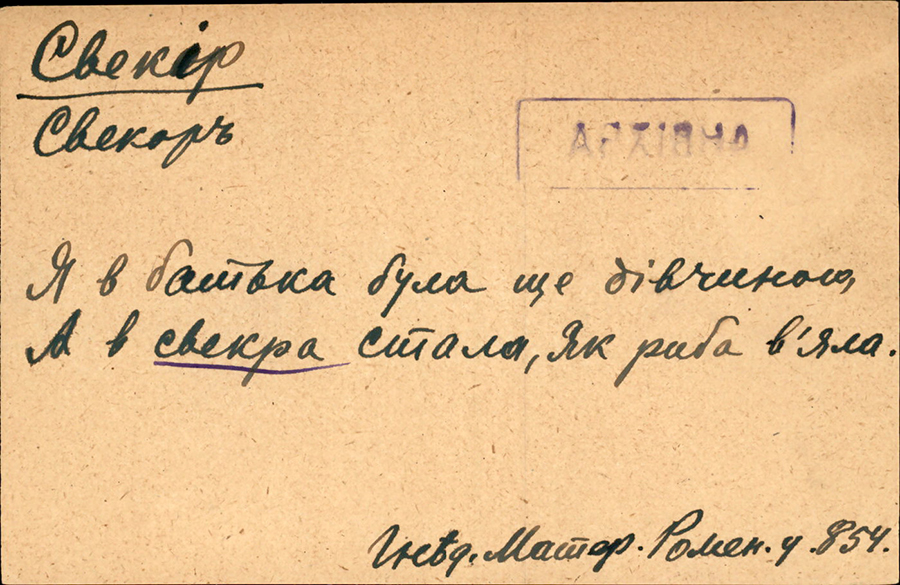 Свекір
Свекоръ
АРХІВНА
Я в батька була ще дівчиною,
А в свекра стала, як риба в'яла.
Гнѣд. Матер. Ромен. у. 854.